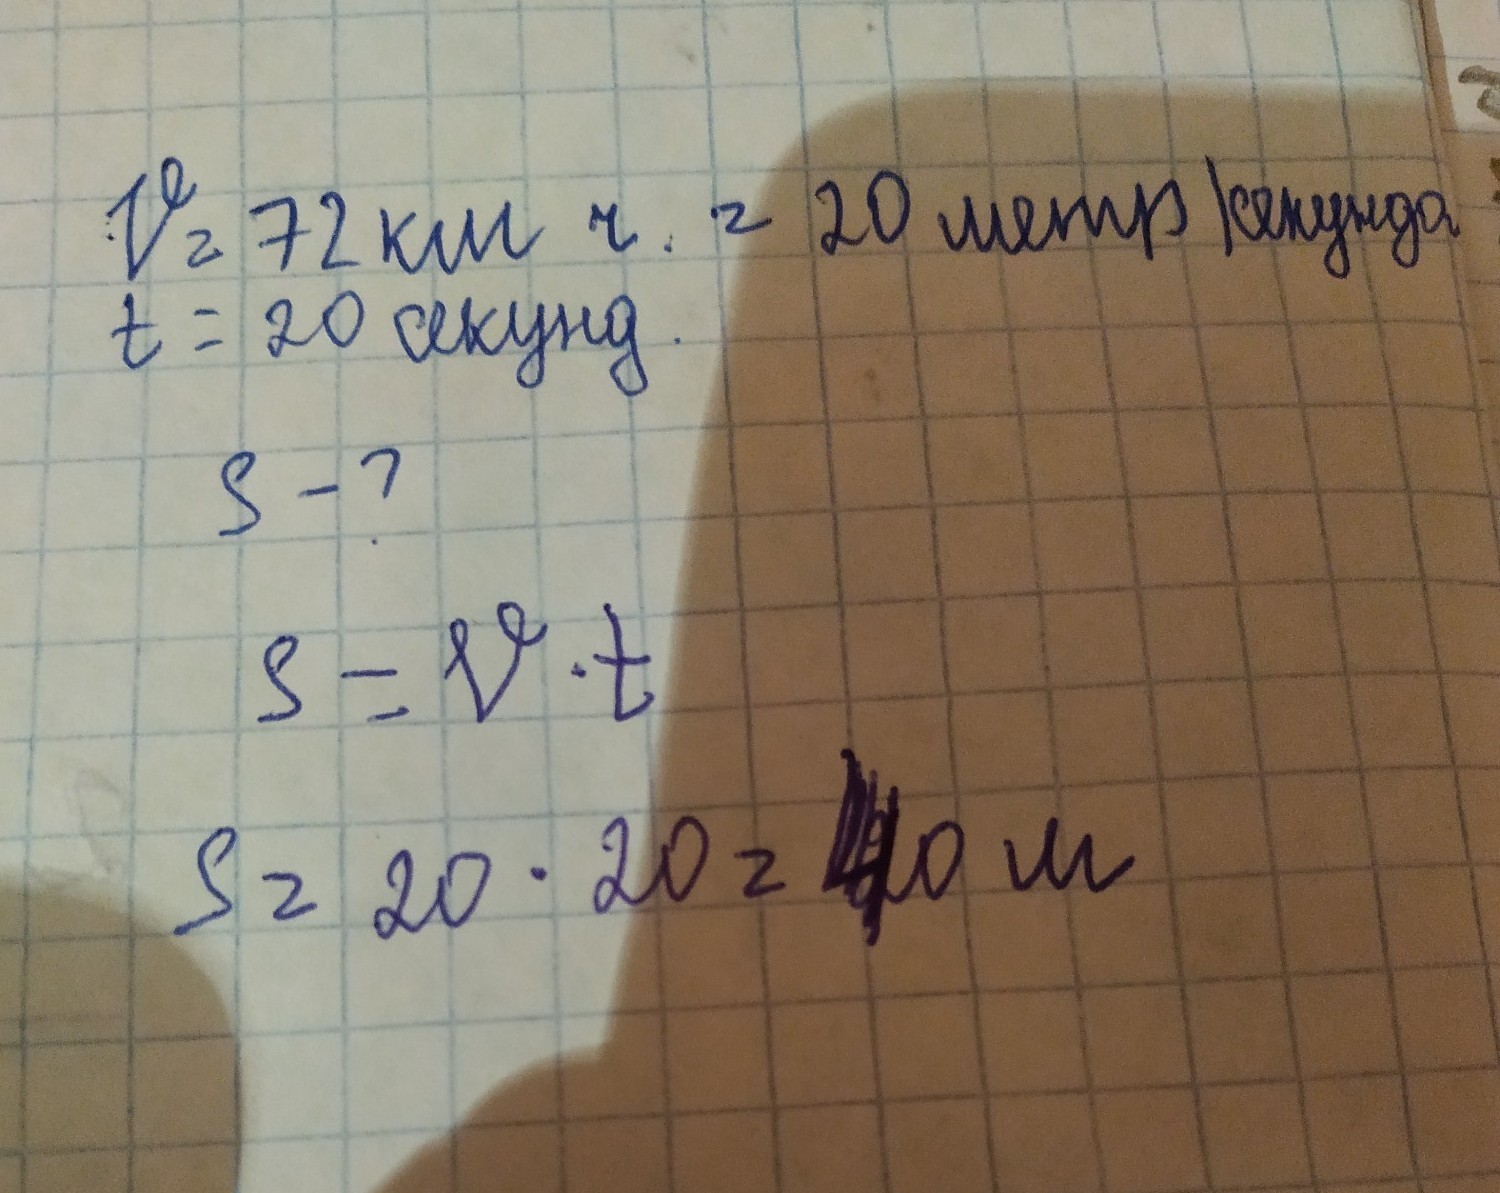 V = 72 км ч. = 20 метр/секунда
t = 20 секунд.
S - ?
S = V · t
S = 20 · 20 = 0 м